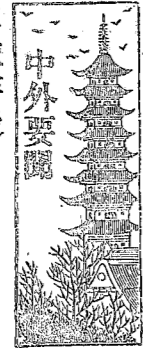 中外要聞